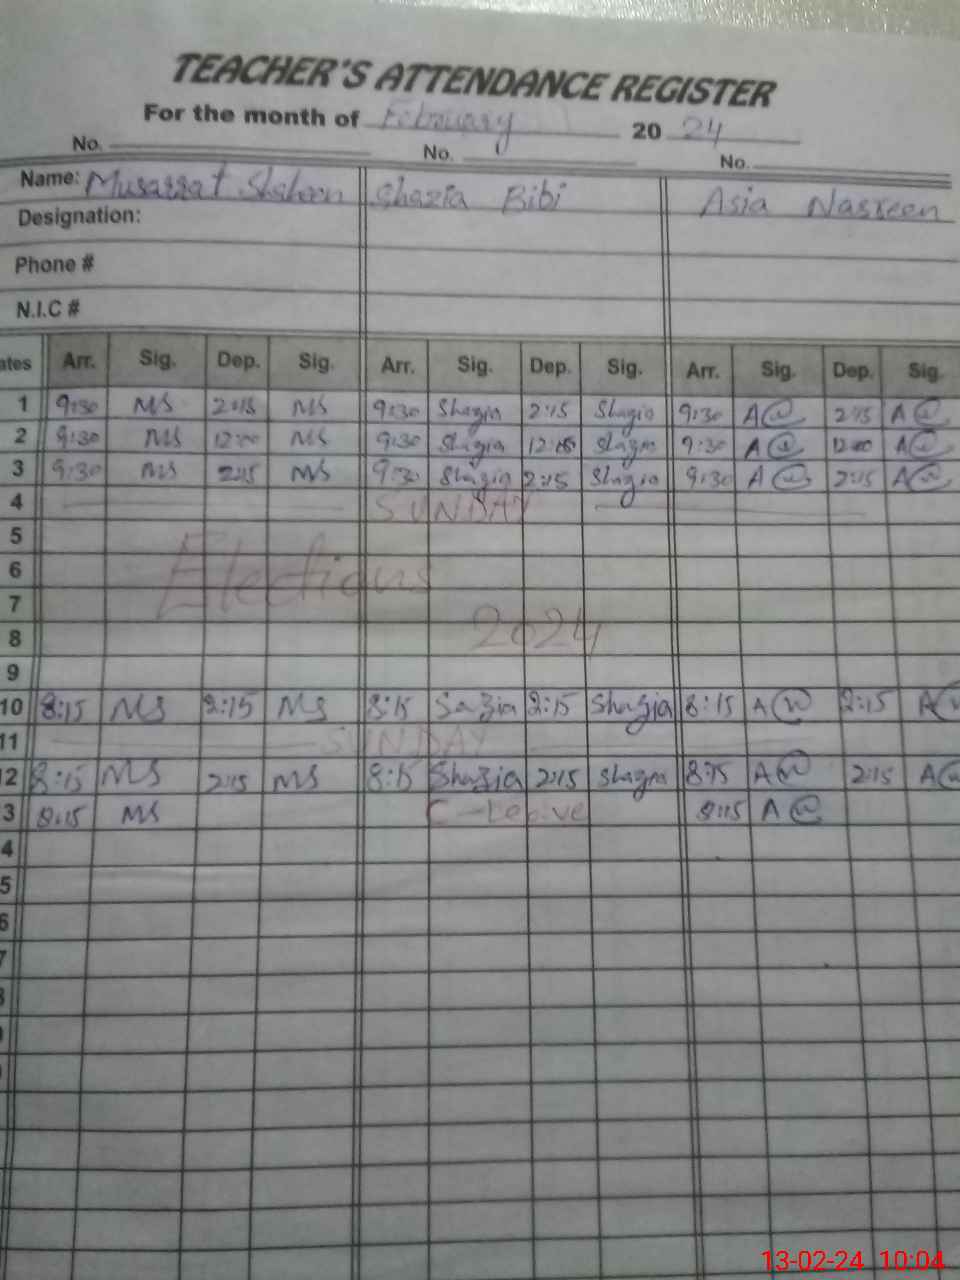 TEACHER'S ATTENDANCE REGISTER
For the month of February 20 24
No. No. No.
Name: Musarrat Shaheen Shazia Bibi Asia Nasreen
Designation:
Phone #
N.I.C #
ates Arr. Sig. Dep. Sig. Arr. Sig. Dep. Sig. Arr. Sig. Dep. Sig.
1 9:30 MS 2:15 MS 9:30 Shazia 2:15 Shazia 9:30 A@ 2:15 A@
2 9:30 MS 12:00 MS 9:30 Shazia 12:00 Shazia 9:30 A@ 12:00 A@
3 9:30 MS 2:15 MS 9:30 Shazia 2:15 Shazia 9:30 A@ 2:15 A@
4 SUNDAY
5
6 Elections
7
8 2024
9
10 8:15 MS 2:15 MS 8:15 Sazia 2:15 Shazia 8:15 A@ 2:15 A@
11 SUNDAY
12 8:15 MS 2:15 MS 8:15 Shazia 2:15 Shazia 8:15 A@ 2:15 A@
3 8:15 MS C-Leave 8:15 A@
4
5
6
7
8
13-02-24 10:04